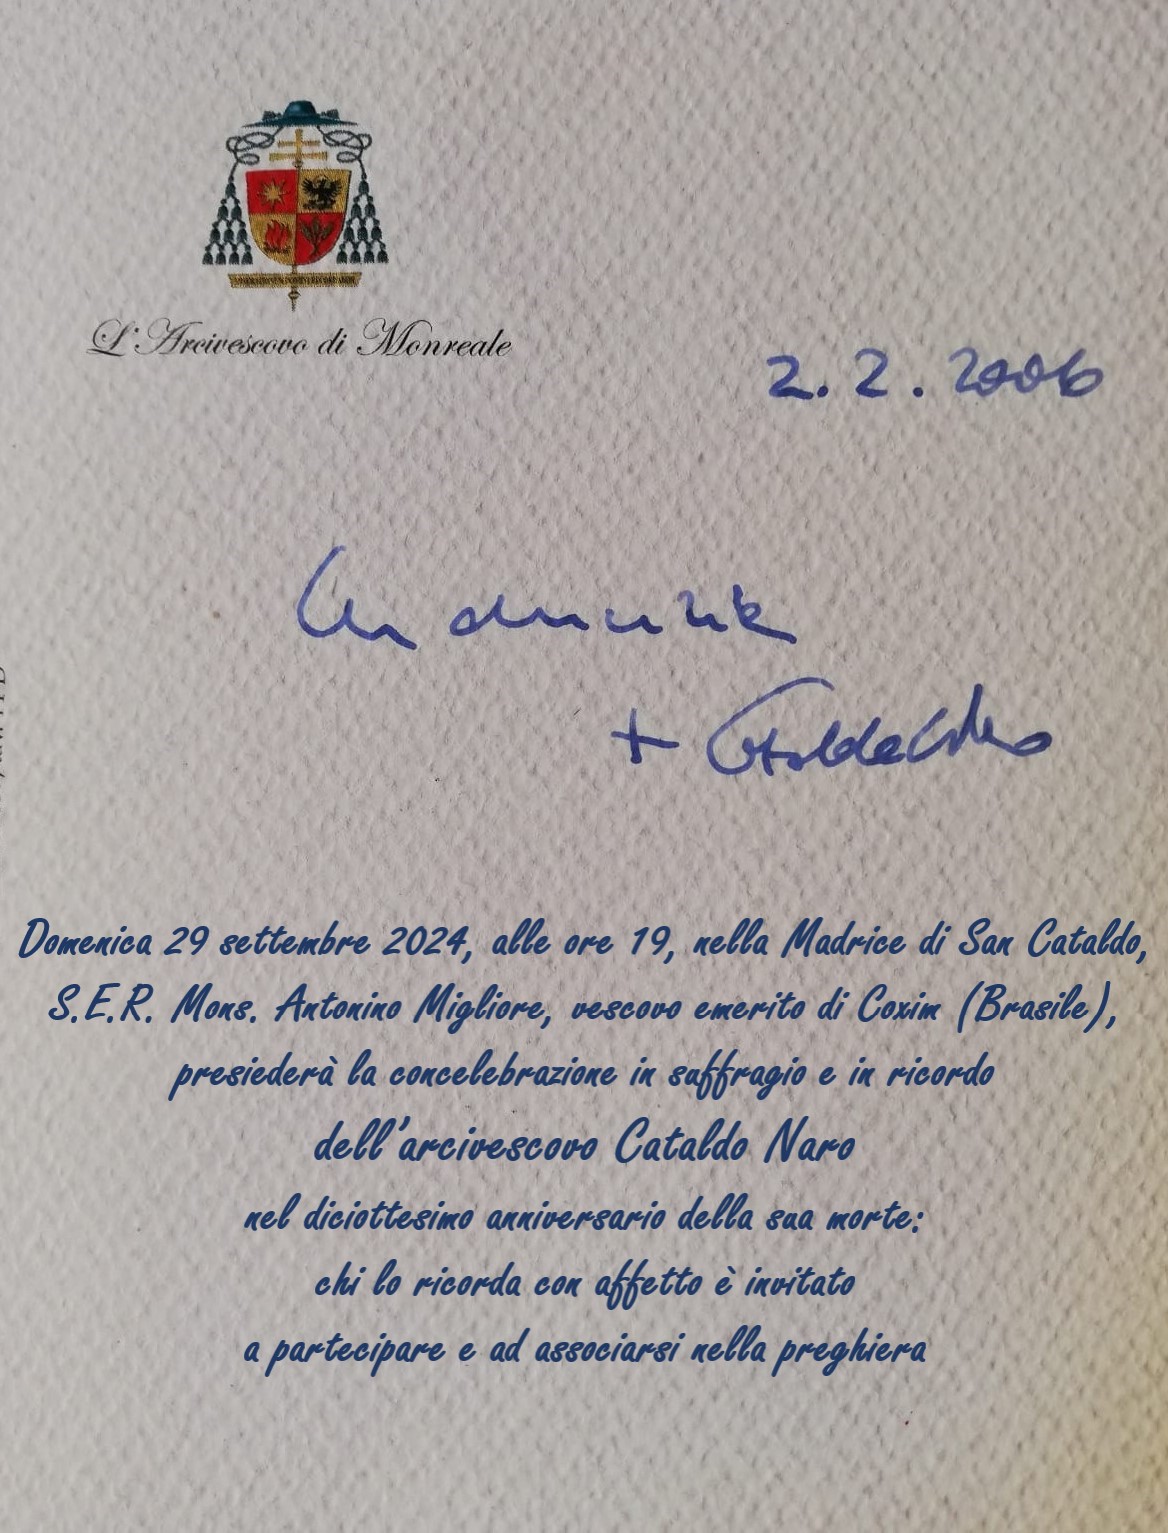 L'Arcivescovo di Monreale
2.2.2006
Con amicizia
+ Cataldo Naro
Domenica 29 settembre 2024, alle ore 19, nella Madrice di San Cataldo,
S.E.R. Mons. Antonino Migliore, vescovo emerito di Coxim (Brasile),
presiederà la concelebrazione in suffragio e in ricordo
dell'arcivescovo Cataldo Naro
nel diciottesimo anniversario della sua morte:
chi lo ricorda con affetto è invitato
a partecipare e ad associarsi nella preghiera